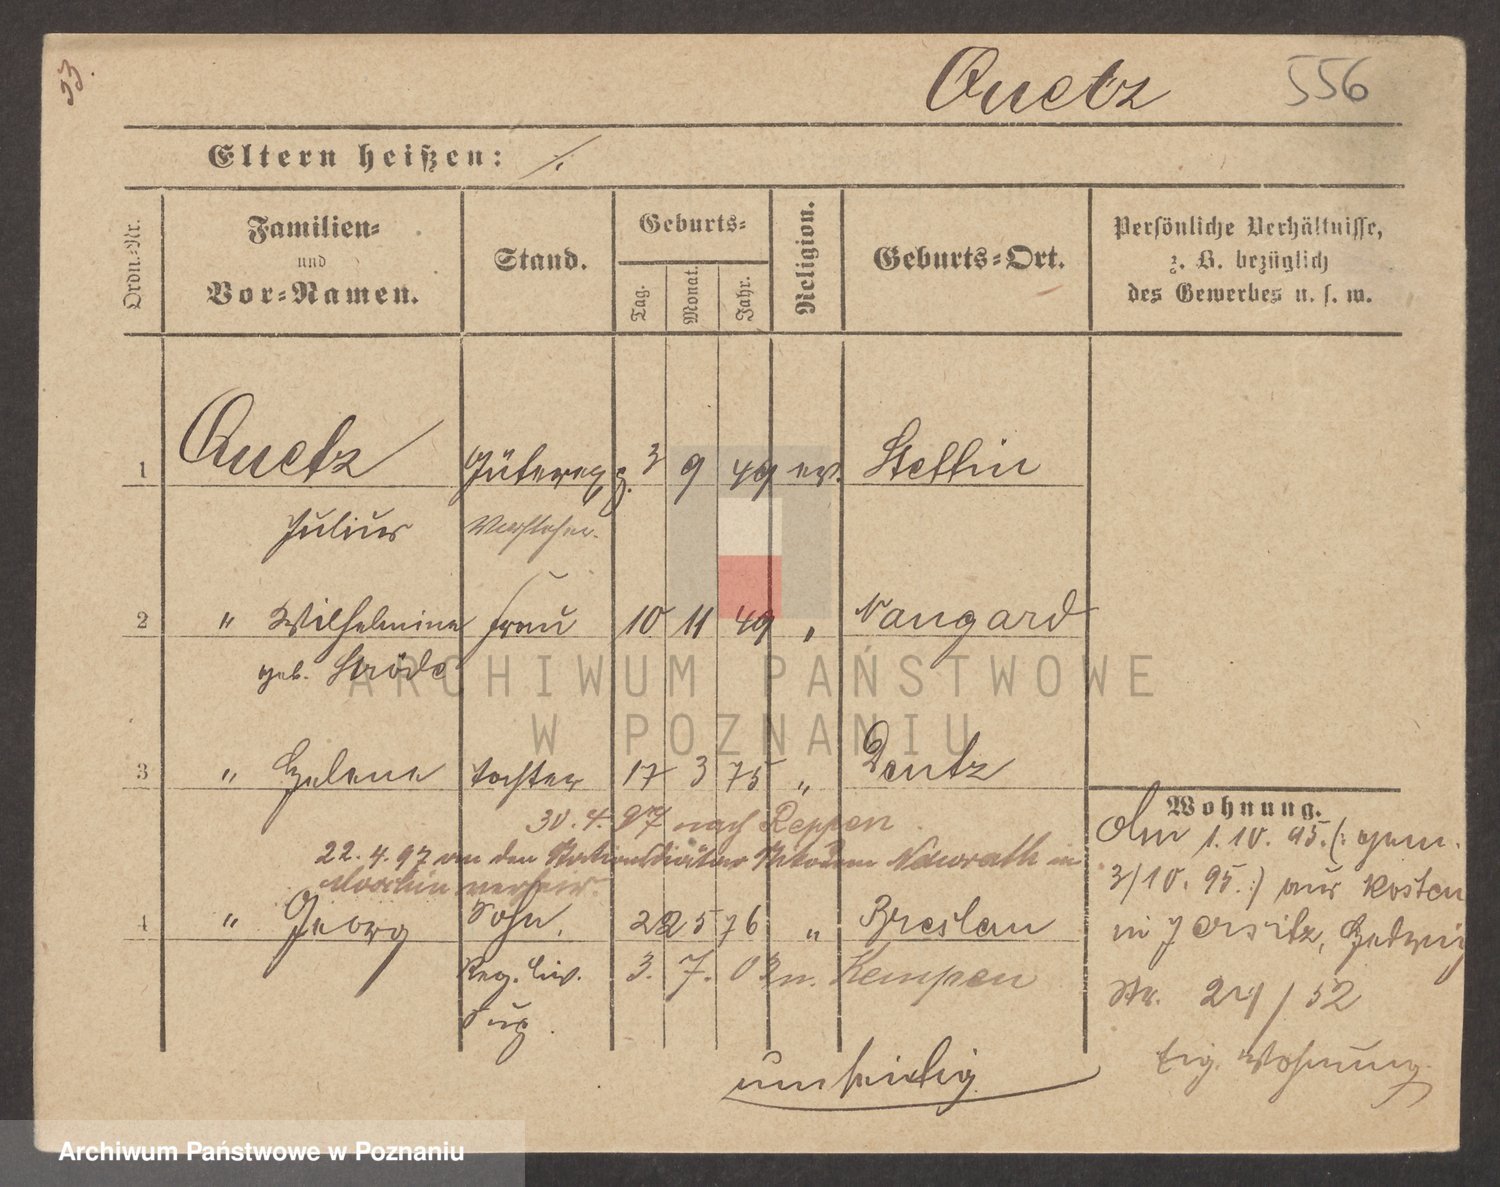 53.
Quetz 556
Eltern heißen: ./.
Ordn.-Nr.
Familien-
und
Vor-Namen.
Stand.
Geburts-
Tag.
Monat.
Jahr.
Religion.
Geburts-Ort.
Persönliche Verhältnisse,
z. B. bezüglich
des Gewerbes u. s. w.
1 Quetz Güterexp. 3 9 49 ev. Stettin
Julius Vorsteher.
2 " Wilhelmine Frau 10 11 49 " Naugard
geb. Ströde
ARCHIWUM PAŃSTWOWE
W POZNANIU
3 " Helene Tochter 17 3 75 " Deutz
30.4.97 nach Reppen
22.4.97 an den Nawrath in
Moschin verheir.
4 " Georg Sohn. 22 5 76 " Breslau
Reg. Civ. 3. 7. 02 n. Kempen
Sup.
umseitig
Wohnung.
Am 1.10.95. (: gem.
3/10.95. :) aus Kosten
in Jersitz, Hedwig
Str. 21/52
Eig. Wohnung.
Archiwum Państwowe w Poznaniu